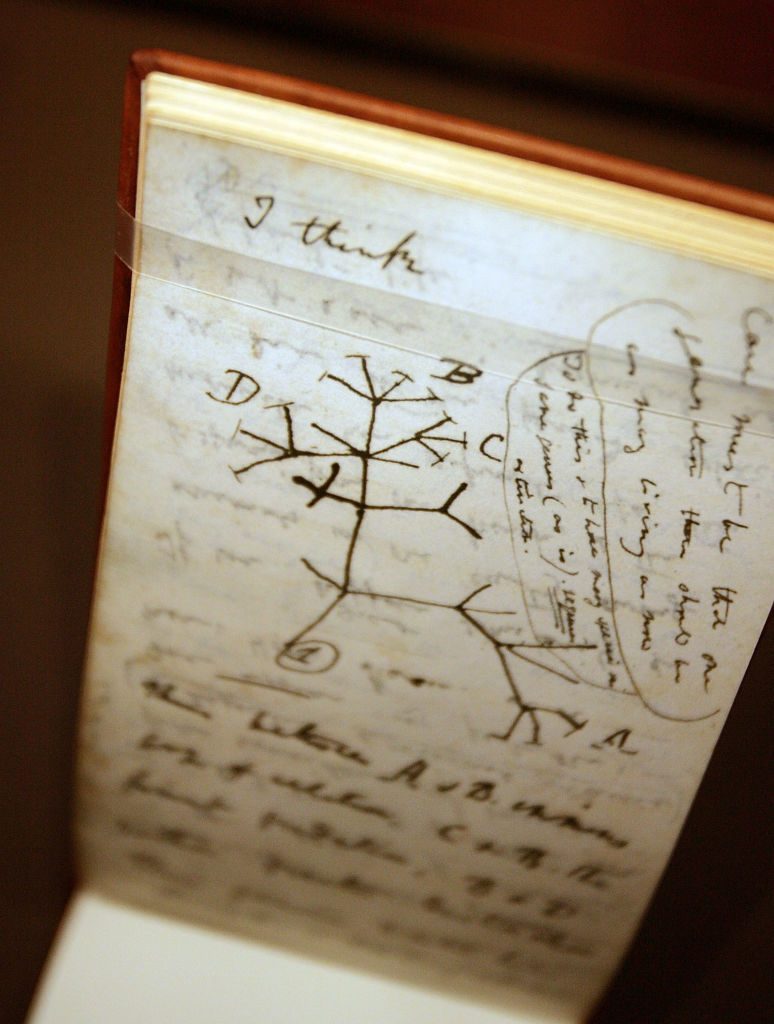 I think
Case must be that one
generation then should be
as many living as now
To do this & to have many species in
same genus (as is). requires
extinction.
D
B
C
1
A
Thus between A & B. immense
gap of relation. C & B. the
finest gradation, B & D
rather greater distinction